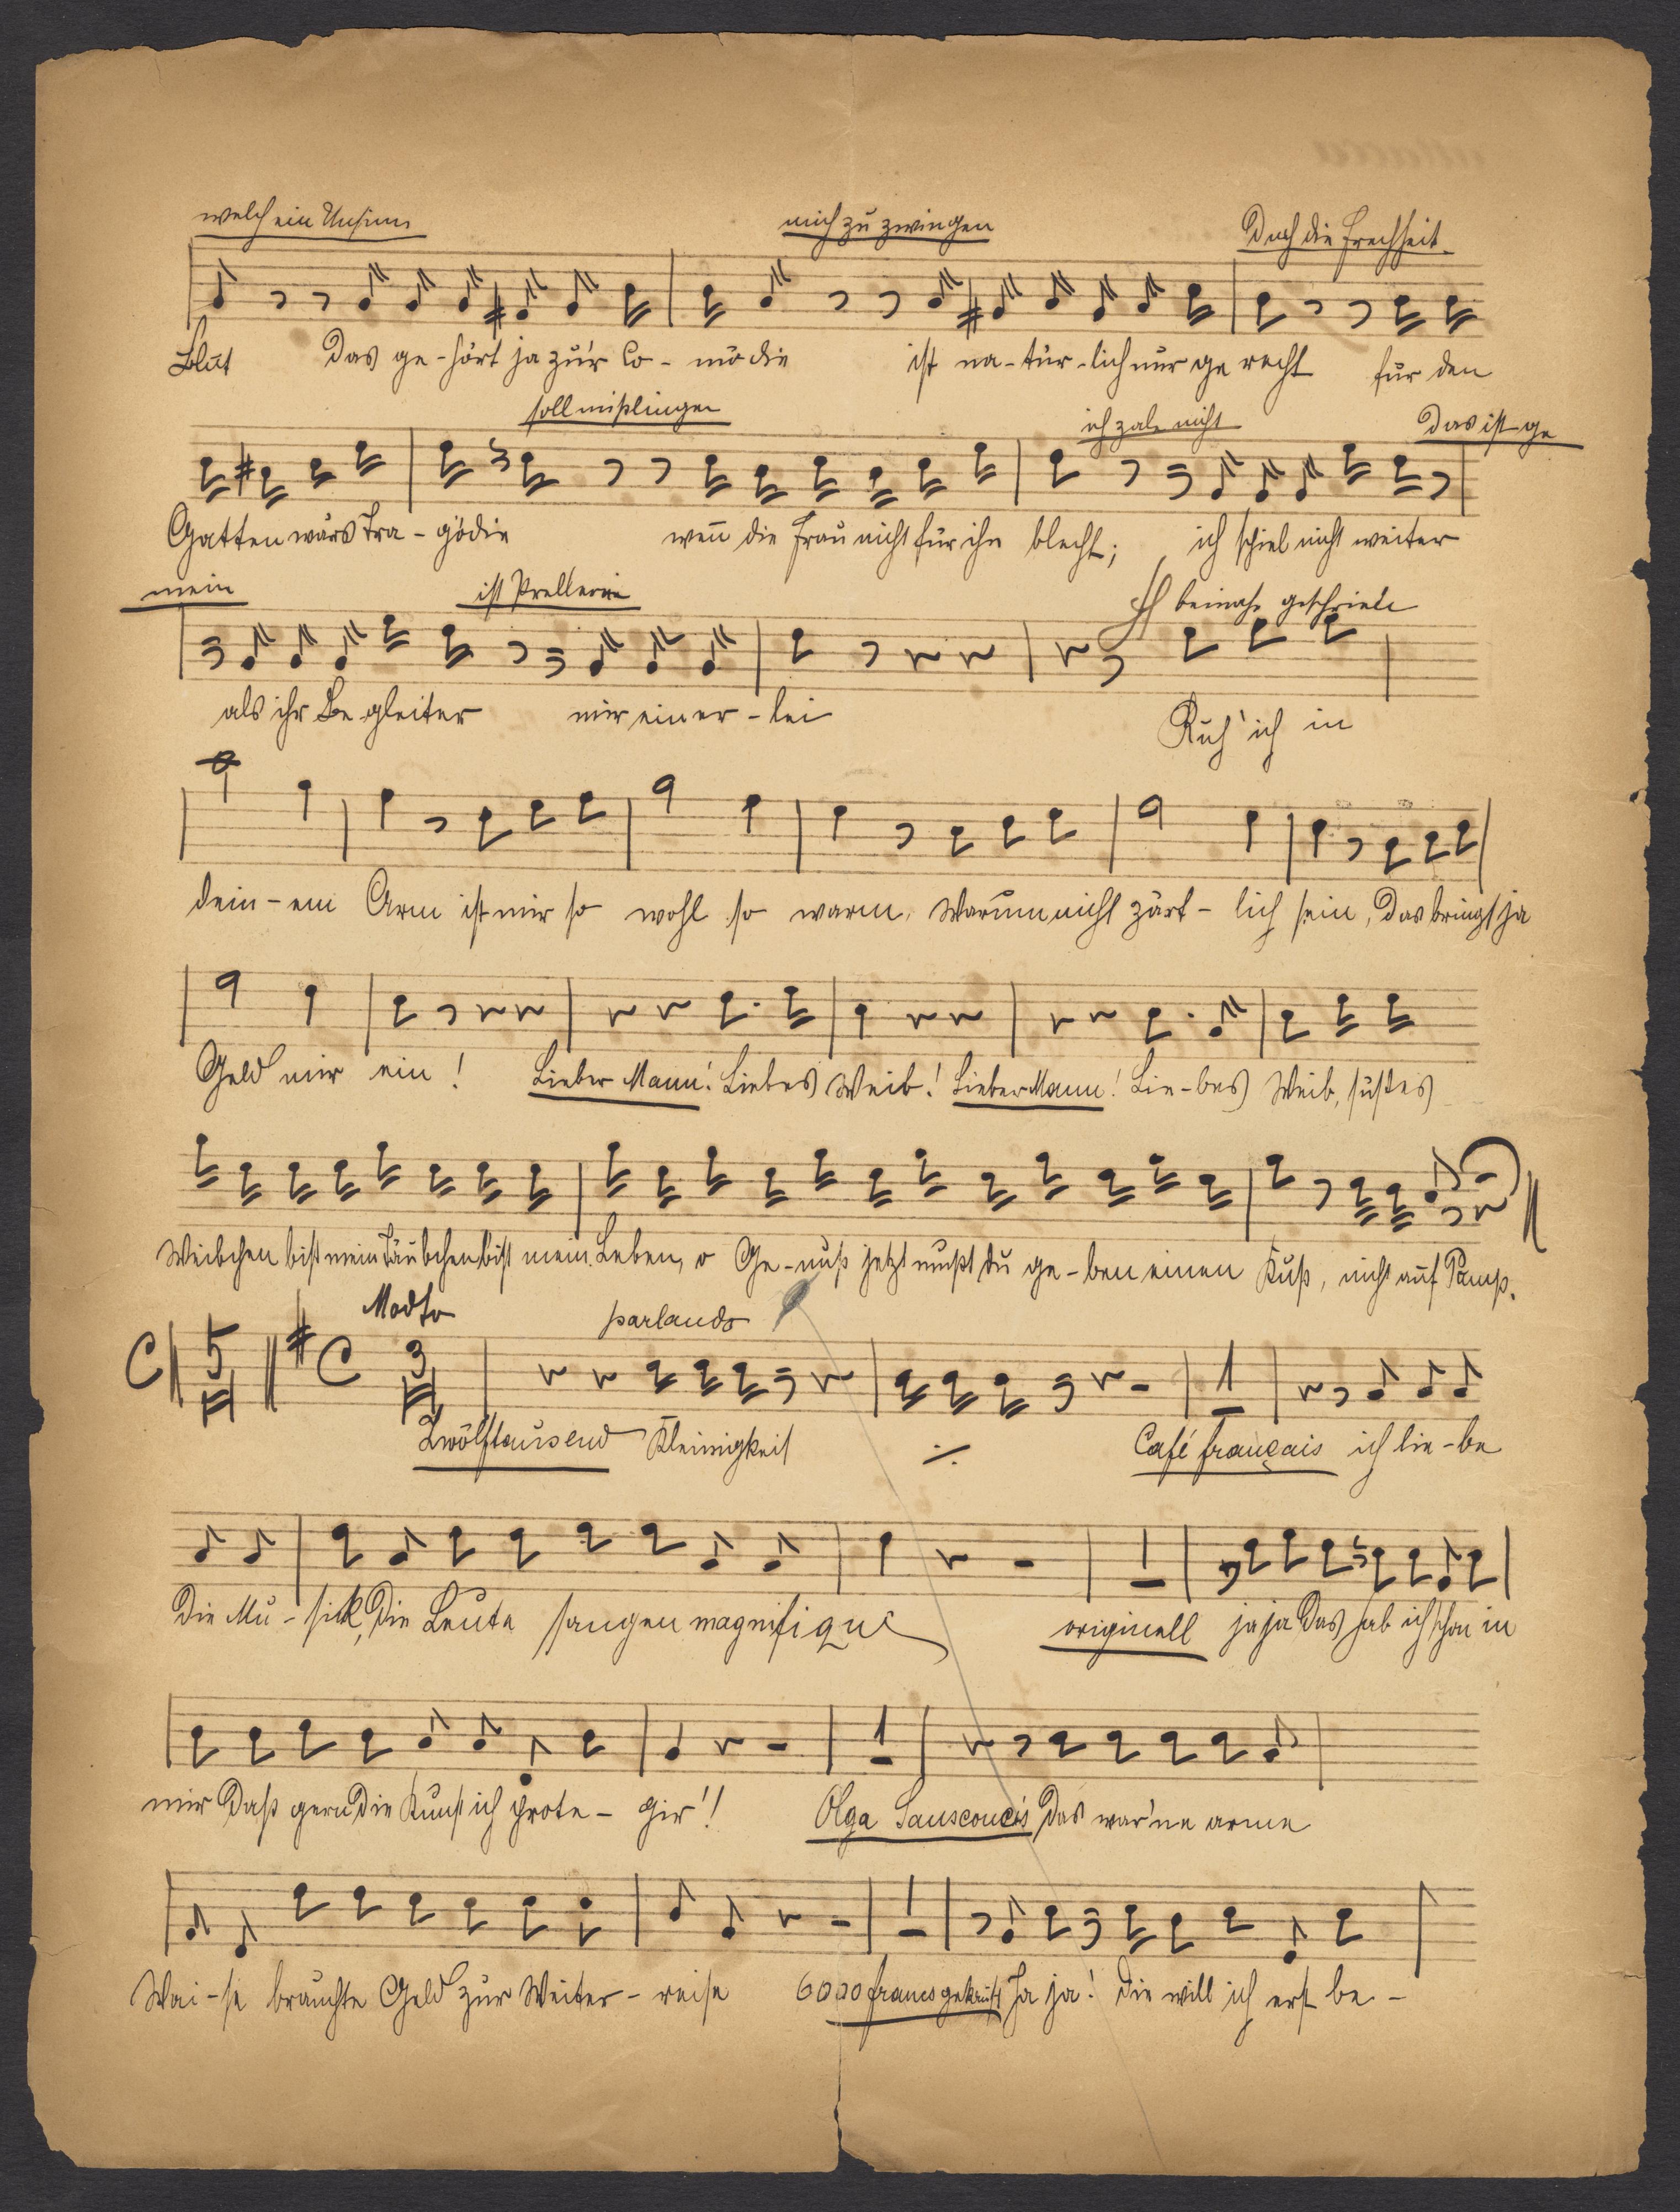 welch ein Unsinn mich zu zwingen Doch die Frechheit
Blut Das ge-hört ja zur Co-mödie ist na-tür-lich nur ge recht für den
soll mißlingen ich zahle nicht Das ist ge
Gatten wärs Tra-gödie weñ die Frau nicht für ihn blecht; ich spiel nicht weiter
mein ist Prellerei ff beinahe geschrieen
als ihr Be-gleiter mir einer-lei Ruh' ich in
dein-em Arm ist mir so wohl so warm, Warum nicht zärt-lich sein, Das bringt ja
Geld mir ein! Lieber Mann! Liebes Weib! Lieber Mann! Lie-bes Weib, süßes
Weibchen bist mein Täubchen, bist mein Leben, o Ge-nuß jetzt mußt du ge-ben einen Kuß, nicht auf Pump.
Modto parlando
C 5 C 3 1
Zwölftausend Kleinigkeit ·/· Café français ich lie-be
1
die Mu-sick, Die Leute sangen magnifique originell ja ja Das hab ich schon in
1
mir Daß gern Die Kunst ich prote-gir'! Olga Sanscoucis Das war 'ne arme
1
Wai-se brauchte Geld zur Weiter-reise 6000 francs gekrift Ja ja! die will ich erst be-